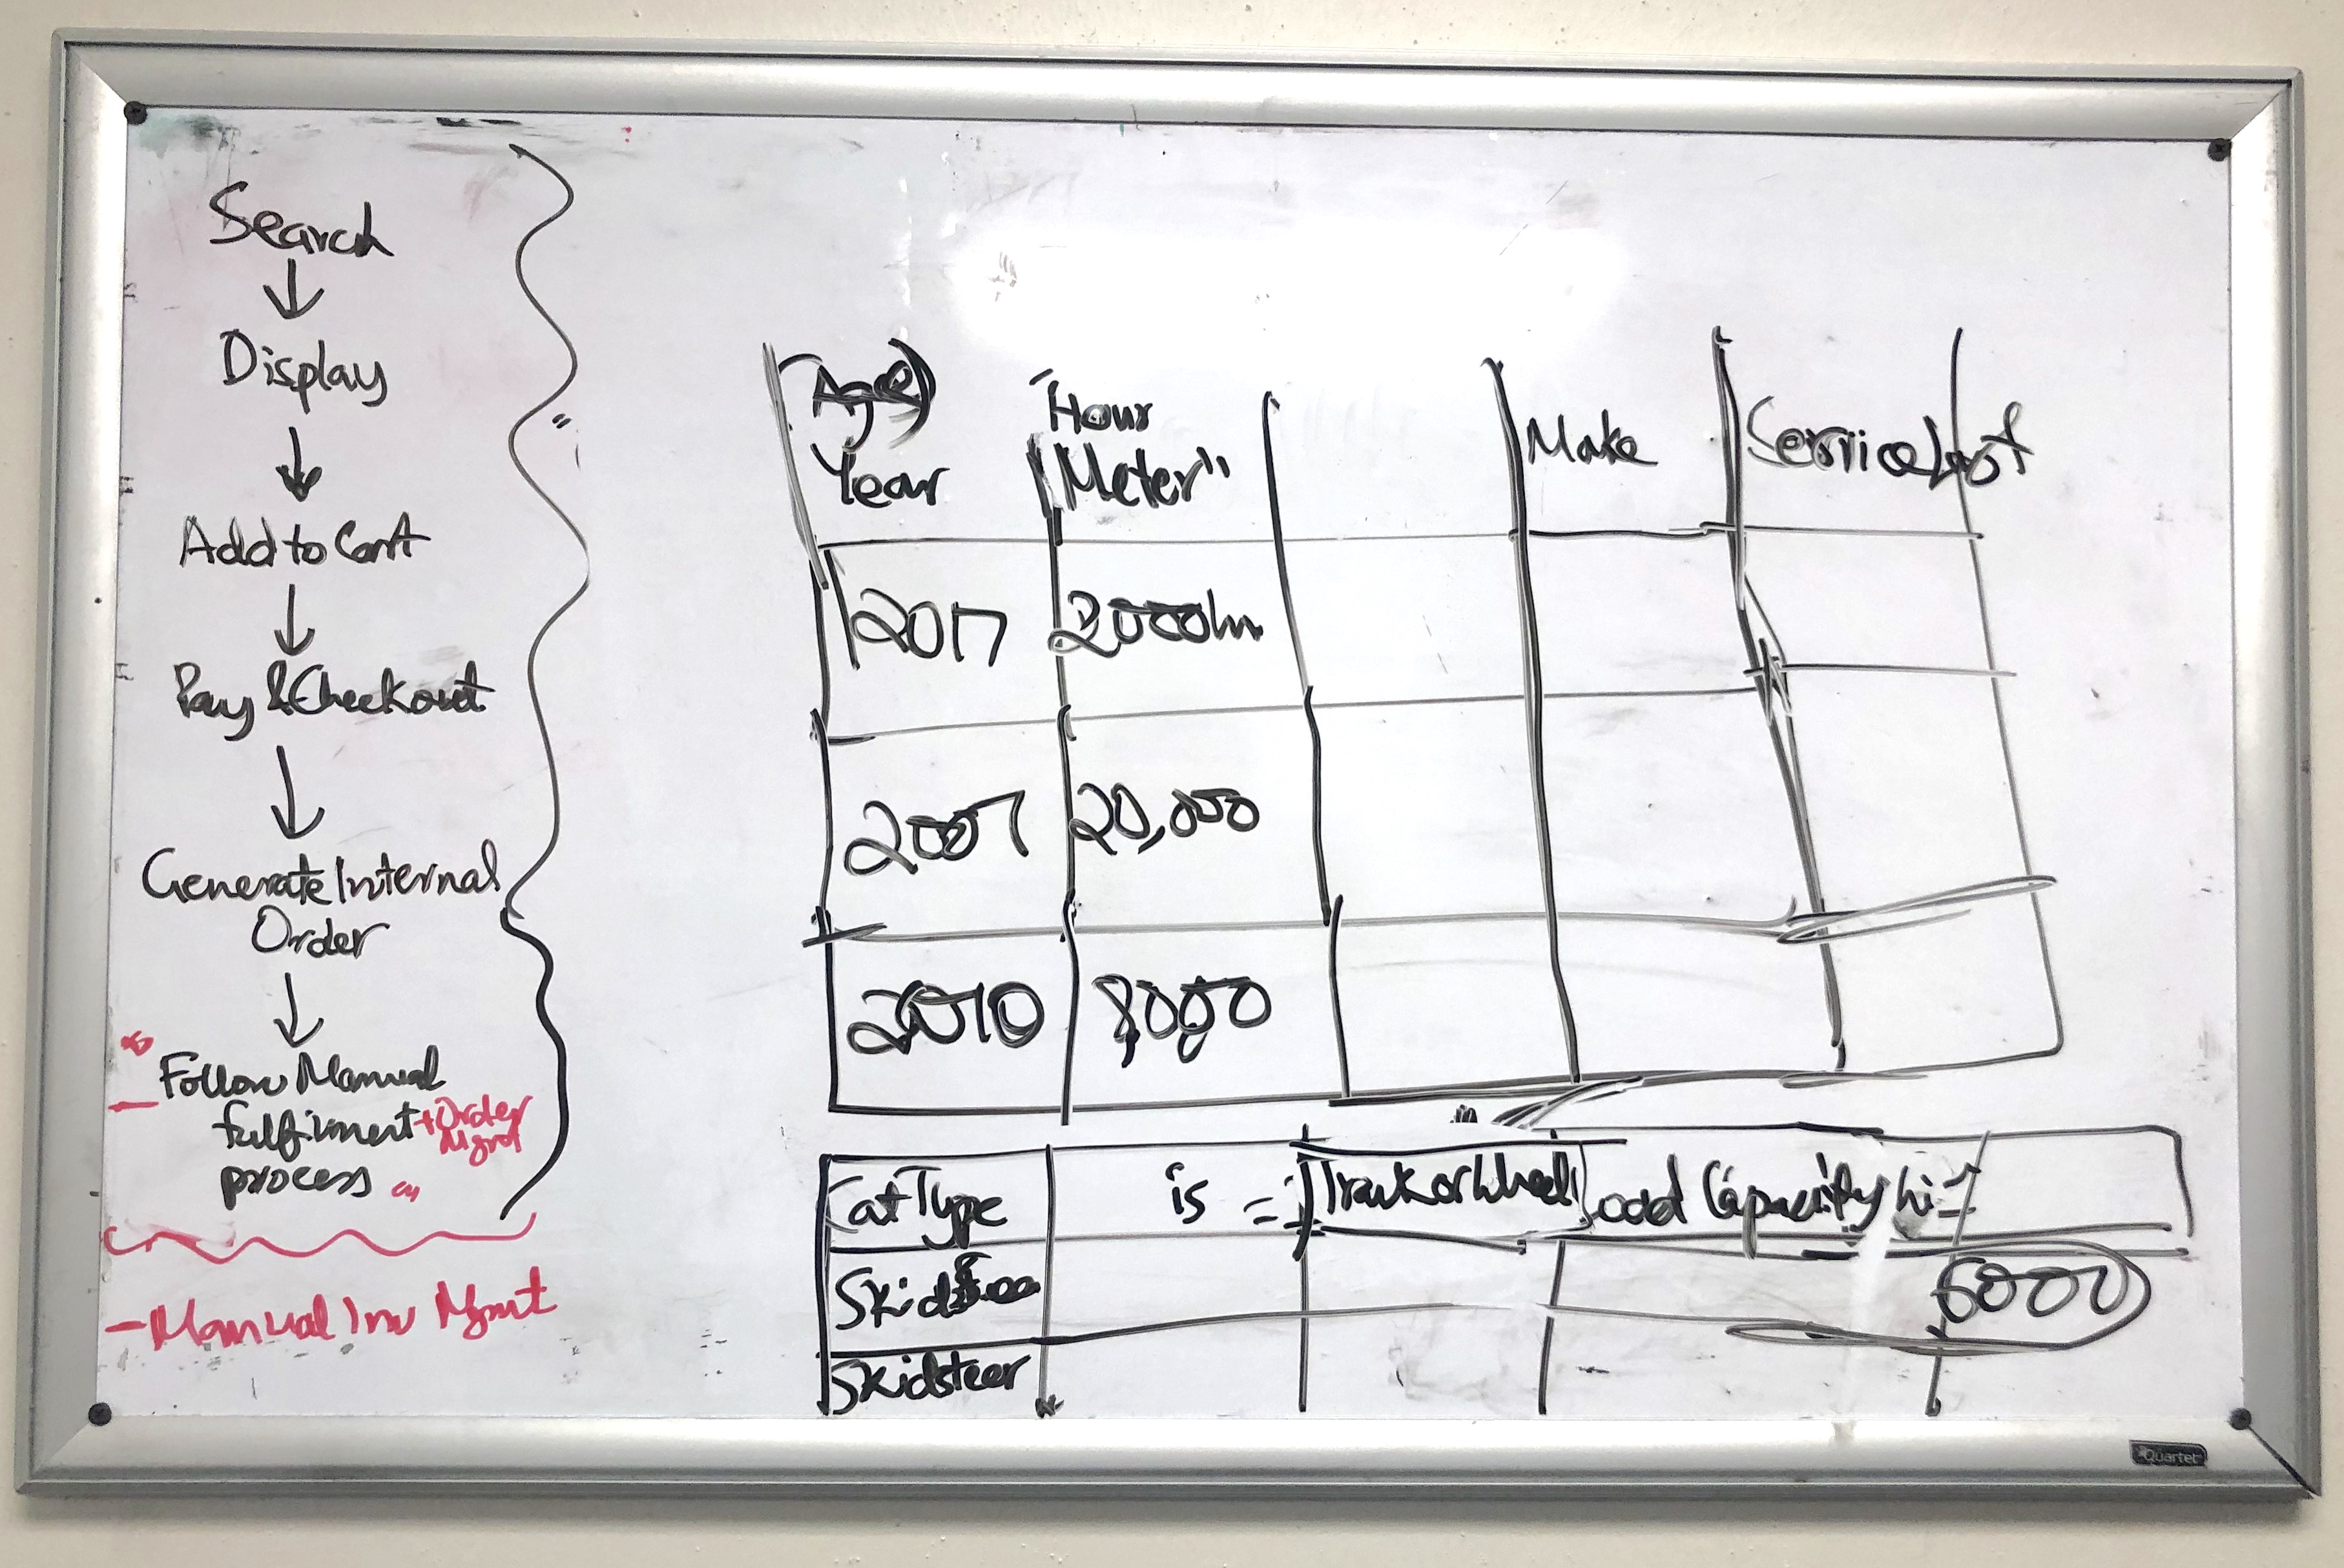 Search
↓
Display
↓
Add to Cart
↓
Pay & Checkout
↓
Generate Internal
Order
↓
Follow Manual
fulfilment + Order
Mgmt
process
- Manual Inv Mgmt
(Age)
Year
"Hour
Meter"
Make
Service
2017
2000hr
2007
20,000
2010
8000
Cat Type
is =
Track or Wheel
Load Capacity
Skidsteer
5000
Skidsteer
Quartet